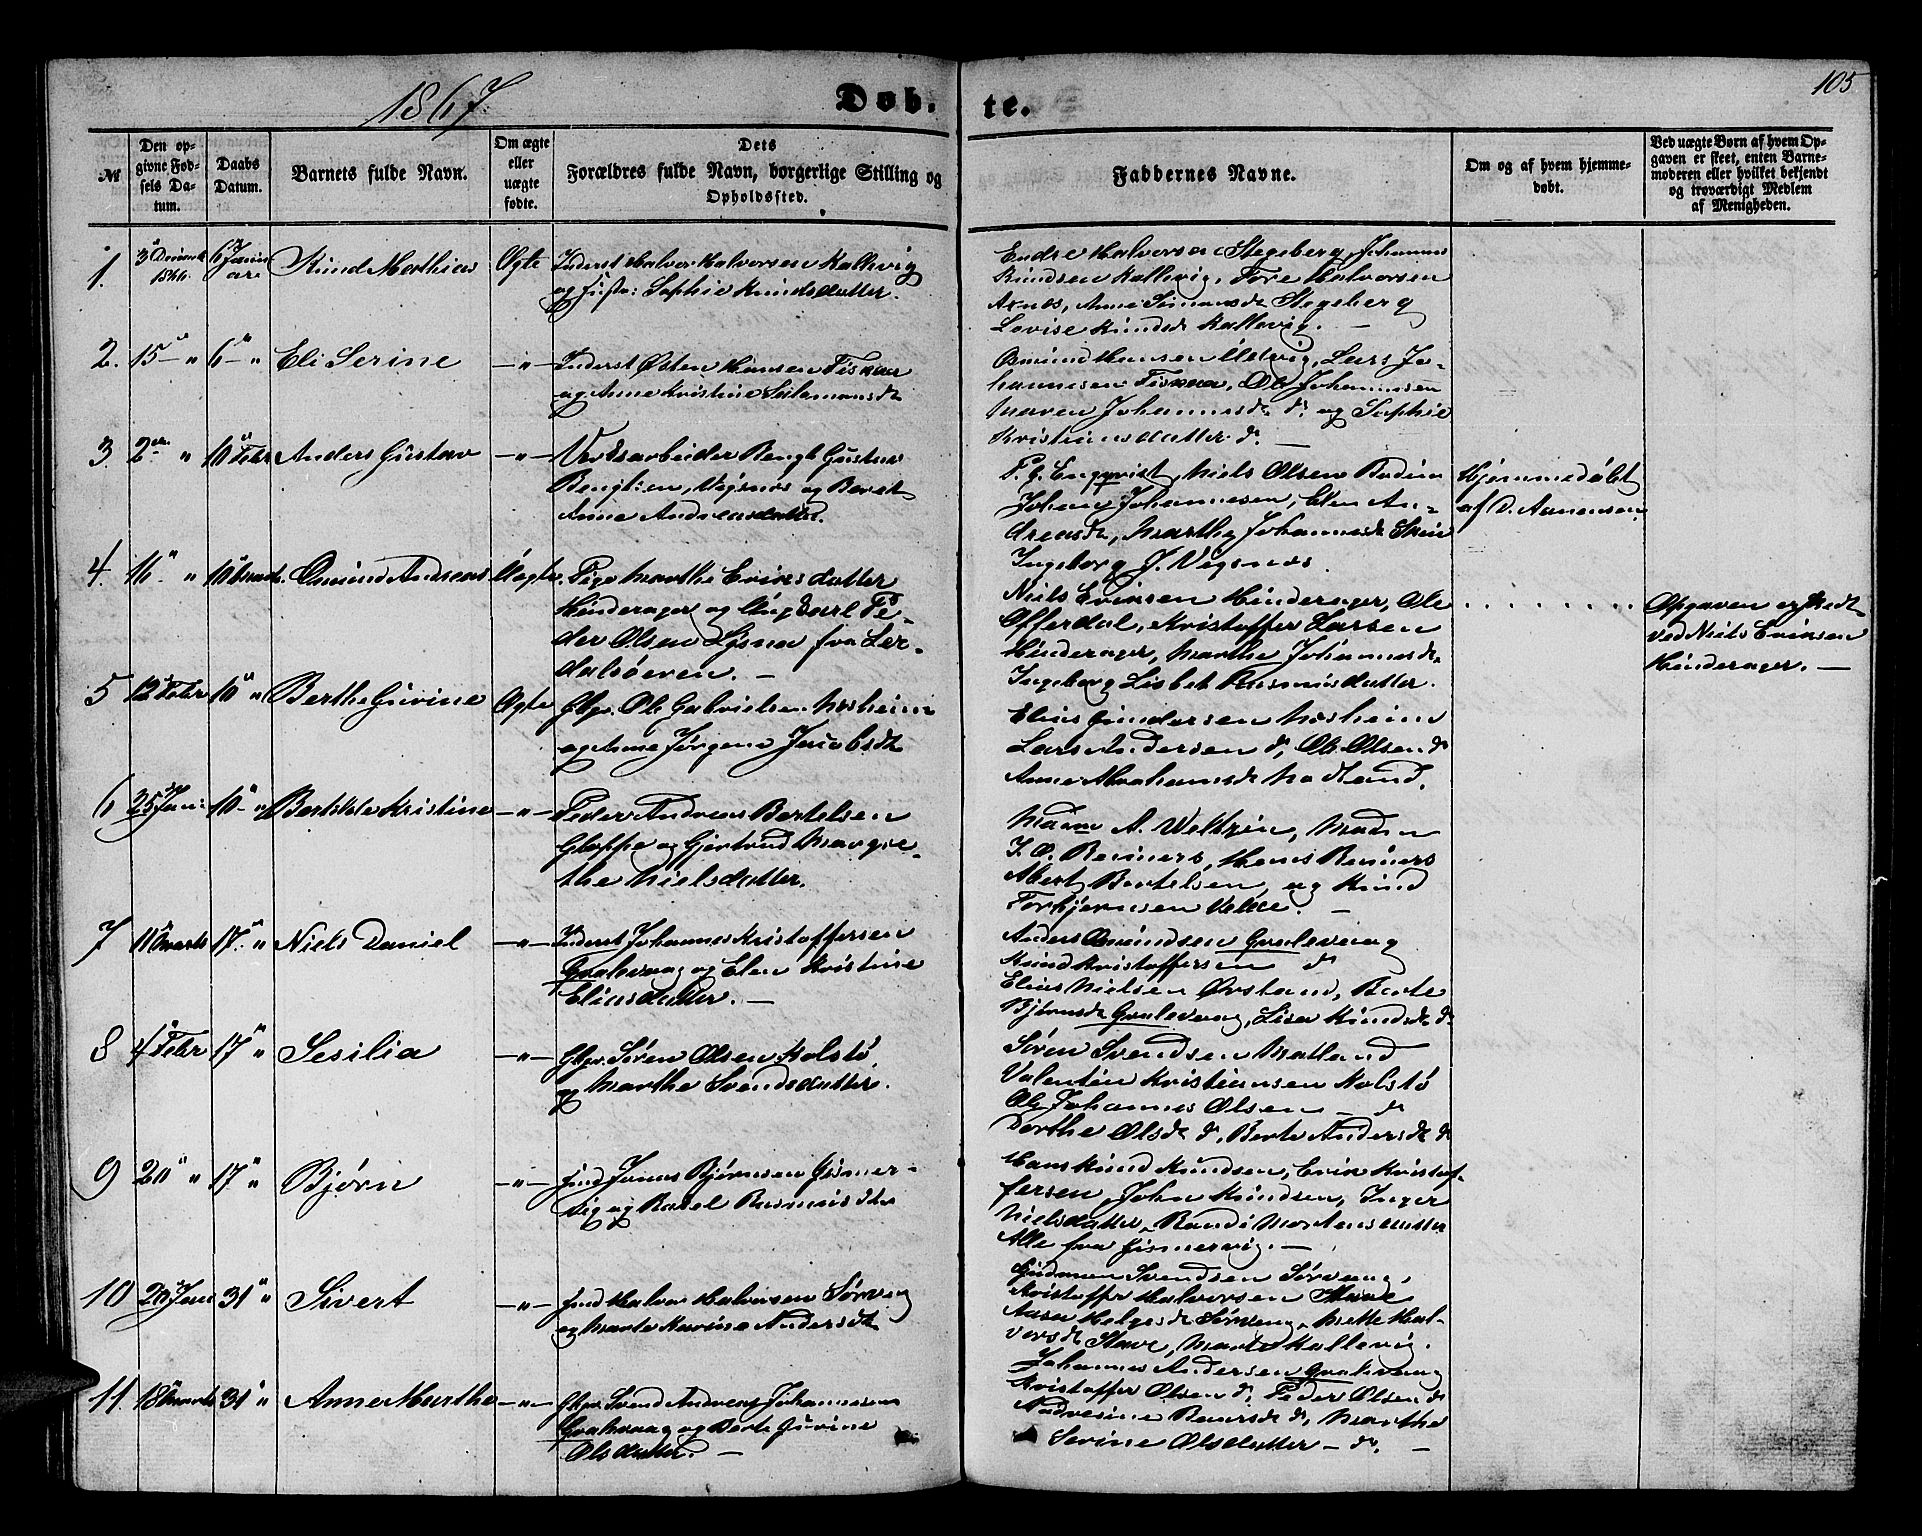 1867
Døb.
te.
105
№
Den op-
givne Fød-
sels Da-
tum.
Daabs
Datum.
Barnets fulde Navn.
Om ægte
eller
uægte
fødte.
Dets
Forældres fulde Navn, borgerlige Stilling og
Opholdssted.
Faddernes Navne.
Om og af hvem hjemme-
døbt.
Ved uægte Børn af hvem Op-
gaven er skeet, enten Barne-
moderen eller hvilket bekjendt
og troværdigt Medlem
af Menigheden.
1. 3 1866. 6 Janu
are Knud Mathias Ægte Inderst Halvor Halvorsen Kallevig
og Sophie Knudsdatter.
Endre Halvorsen Stegeberg, Johannes
Knudsen Kallevig, Tore Halvorsen
Anne Simonsd Stegeberg
Lovise Knudsd Kallevig. —
2. 15 — " 6 — " Eli Serine —"— Inderst Østen Hansen Fisnaa
og Anne Kristine Salamonsdt
Osmund Hansen Udvig, Lars Jo-
hannesen Fisnaa, Ole Johannesen
Maren Johannesdt do og Sophie
Kristiansdatter do. —
3. 2 " 10 Febr Anders Gustav —"— Værksarbeider Bengt Gustav
Bengtsen, Vigsnæs og Beret
Anne Andreasdatter.
P. G. Enqvist, Niels Olsen
Johan Johannesen, Elen An-
dreasdt, Marthe Johannesdt
Ingeborg J. Vigsnæs.
Hjemmedøbt
af D. Aanensen
4. 16 " 10 Marts. Osmund Andreas Uægte Pige Marthe Eriksdatter
Hinderager og Ungkarl Pe-
der Olsen Lysne fra Ler-
dalsøeren. —
Niels Eriksen Hinderager, Ole
Offerdal, Kristoffer Larsen
Hinderager, Marthe Johannesdt,
Ingeborg Lisbet Rasmusdatter.
. . . . . . . .
Opgaven er skedt
ved Niels Eriksen
Hinderager. —
5 12 Febr 10 " Berthe Gurine Ægte Gbr. Ole Gabrielsen Mosheim
og Anne Jørgene Jacobsdt
Elias Gundersen Mosheim
Lars Andersen do, Ole Olsen do
Anne Abrahamsdt Nodland.
6 25 Jan: 10 — " Bertilde Kristine —"— Peder Andreas Bertelsen
Gloppe og Gjertrud Margre-
the Nielsdatter.
Madam A. Weltzin, Madam
J. O. Reiners, Hans Reiners
Abert Bertelsen, og Knud
Torbjørnsen Velde. —
7 11 Marts 17 " Niels Daniel —"— Inderst Johannes Kristoffersen
Gvalevaag og Elen Kristine
Eliasdatter. —
Anders Osmundsen Gvalevaag
Knud Kristoffersen do
Elias Nielsen Ørstand, Berte
Bjørnsdt Gvalevaag, Lisa Knudsdt do
8 4 Febr 17 " Sesilia —"— Gbr. Søren Olsen Kolstø
og Marthe Svendsdatter.
Søren Svendsen Matland
Valentin Kristiansen Kolstø
Ole Johannes Olsen — do
Dorthe Olsdt do, Berte Andersdt do
9 20 " 17 " Bjørn —"— Jonas Bjørnsen Jismer-
vig og Rakel Rasmusdtr
Hans Knud Knudsen, Erik Kristof-
fersen, John Knudsen, Inger
Nielsdatter, Randi Mortensdatter
Alle fra Jismervig. —
10 20 Jan 31 " Sivert —"— Halvor Halvorsen Sørvaag
og Marte Karine Andersdt
Gudmun Svendsen Sørvaag,
Kristoffer Halvorsen Stave
Aasa Helgesdt Sørvaag, Mette Hal-
vorsdt Stave, Marte Kallevig.
11. 18 Marts 31 " Anne Marthe —"— Gbr. Svend Andreas Johannesen
Gvalevaag og Berte Gurine
Olsdatter. —
Johannes Andersen Gvalevaag
Kristoffer Olsen do, Peder Olsen do
Andresine do, Marthe
Serine Olsdatter — do. —